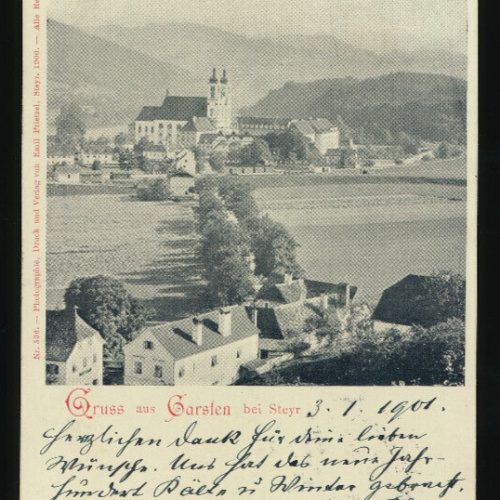 Nr. 526. — Photographie, Druck und Verlag von Emil Prietzel, Steyr. 1900. — Alle Re
Gruss aus Garsten bei Steyr 3. 1. 1901.
Herzlichen Dank für deine lieben
Wünsche. Uns hat das neue Jahr-
hundert Kälte u Winter gebracht.